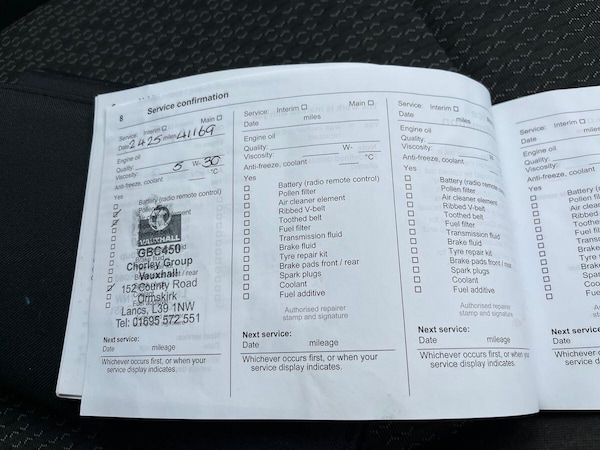 8 Service confirmation
Service: Interim Main
Date 2 4 25 miles 41169
Engine oil
Quality:
Viscosity: 5 W- 30
Anti-freeze, coolant °C
Yes
Battery (radio remote control)
VAUXHALL
GBC450
Chorley Group
Vauxhall
152 County Road
Ormskirk
Lancs, L39 1NW
Tel: 01695 572 551
Next service:
Date mileage
Whichever occurs first, or when your
service display indicates.
Service: Interim Main
Date miles
Engine oil
Quality:
Viscosity: W-
Anti-freeze, coolant °C
Yes
Battery (radio remote control)
Pollen filter
Air cleaner element
Ribbed V-belt
Toothed belt
Fuel filter
Transmission fluid
Brake fluid
Tyre repair kit
Brake pads front / rear
Spark plugs
Coolant
Fuel additive
Authorised repairer
stamp and signature
Next service:
Date mileage
Whichever occurs first, or when your
service display indicates.
Service: Interim
Date miles
Engine oil
Quality:
Viscosity:
Anti-freeze, coolant
Yes
Battery (radio remote
Pollen filter
Air cleaner element
Ribbed V-belt
Toothed belt
Fuel filter
Transmission fluid
Brake fluid
Tyre repair kit
Brake pads front / rear
Spark plugs
Coolant
Fuel additive
Authorised repairer
stamp and signature
Next service:
Date mileage
Whichever occurs first, or when you
service display indicates.
Service: Interim
Date
Engine oil
Quality:
Viscosity:
Anti-freeze, coolant
Yes
Next service:
Date
Whichever
service d